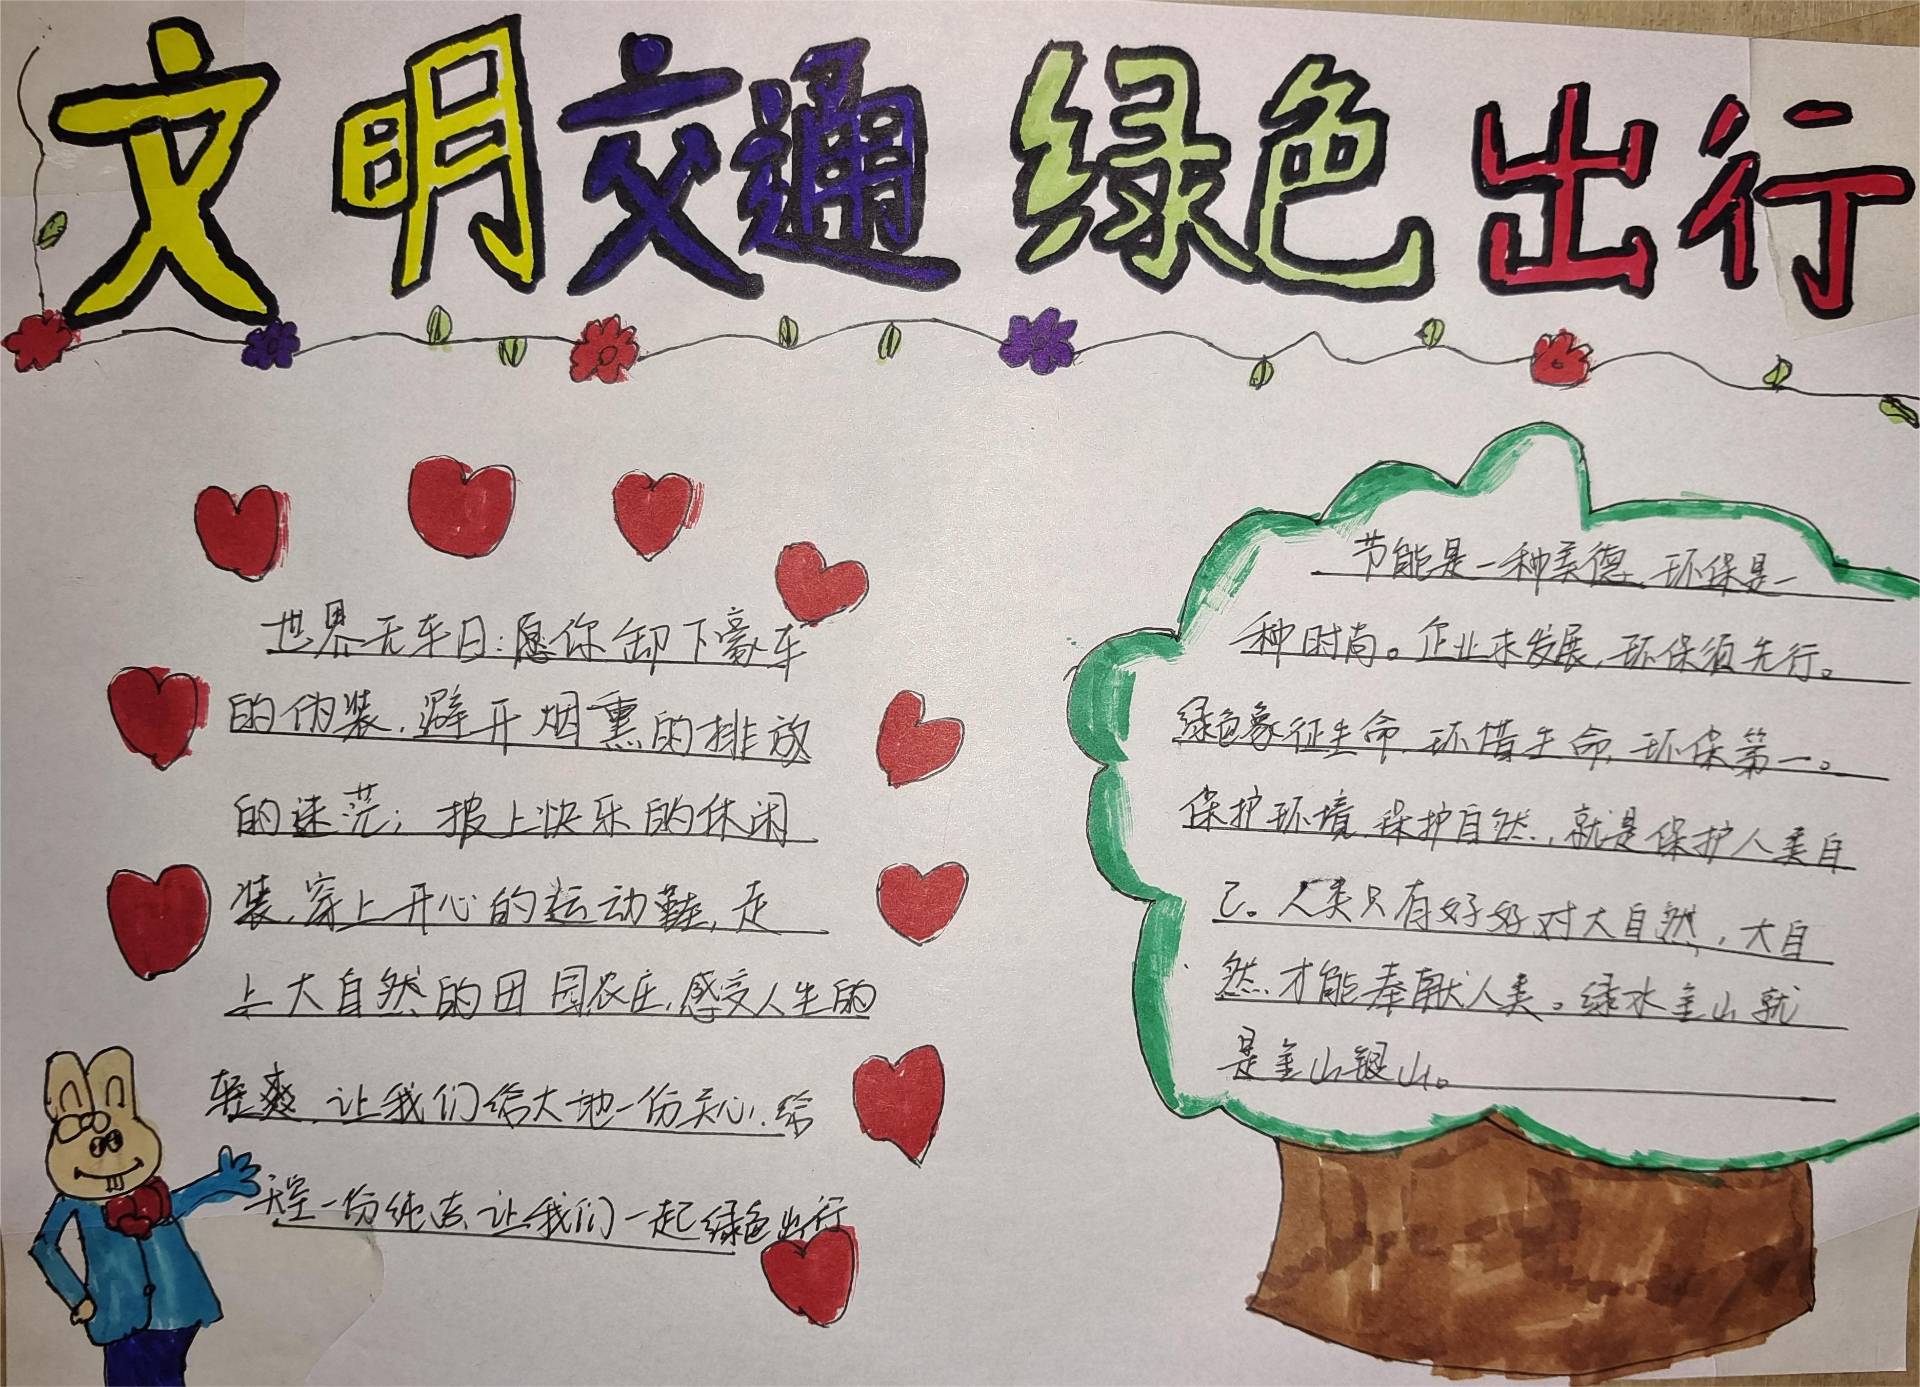 文明交通 绿色出行
世界无车日:愿你卸下豪车
的伪装,避开烟熏的排放
的迷茫;披上快乐的休闲
装,穿上开心的运动鞋,走
上大自然的田园农庄,感受人生的
轻爽,让我们给大地一份关心,给
天空一份纯洁,让我们一起绿色出行
节能是一种美德,环保是一
种时尚。企业未发展,环保须先行。
绿色象征生命,环惜生命,环保第一。
保护环境,保护自然,就是保护人类自
己。人类只有好好对大自然,大自
然才能奉献人类。绿水金山就
是金山银山。